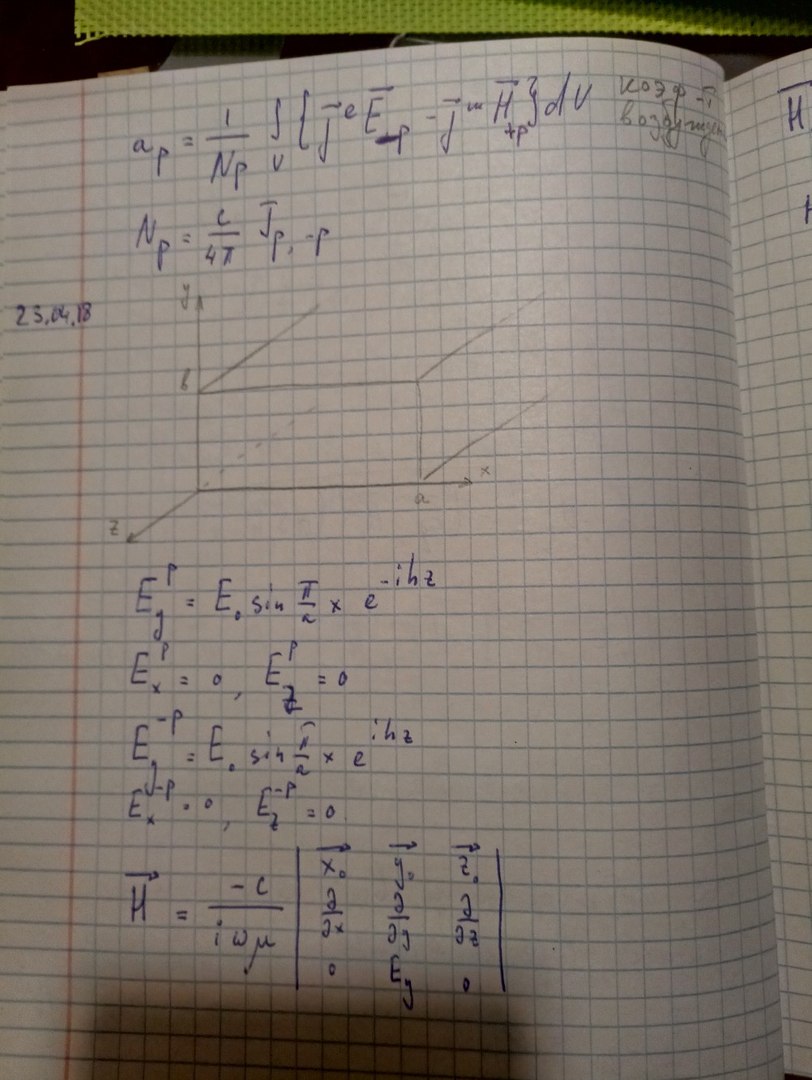 a_p = 1/N_p ∫_V { j⃗^e E⃗_-p - j⃗^m H⃗_+p } dV коэф-т
N_p = c/4π J_p,-p
23.04.18
y
b
a x
z
E_y^p = E_0 sin π/a x e^-ihz
E_x^p = 0, E_z^p = 0
E_y^-p = E_0 sin π/a x e^ihz
E_x^-p = 0, E_z^-p = 0
H⃗ = -c/iωμ | x⃗_0 y⃗_0 z⃗_0 |
| ∂/∂x ∂/∂y ∂/∂z |
| 0 E_y 0 |
H⃗